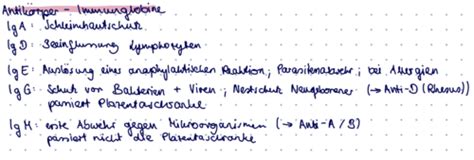 Antikörper - Immunglobine
IgA: Schleimhautschutz
IgD: Beeinflussung Lymphozyten
IgE: Auslösung einer anaphylaktischen Reaktion; Parasitenabwehr; bei Allergien
IgG: Schutz vor Bakterien + Viren; Nestschutz Neugeborener (→ Anti-D (Rhesus))
passiert Plazentaschranke
IgM: erste Abwehr gegen Mikroorganismen (→ Anti-A / B)
passiert nicht die Plazentaschranke